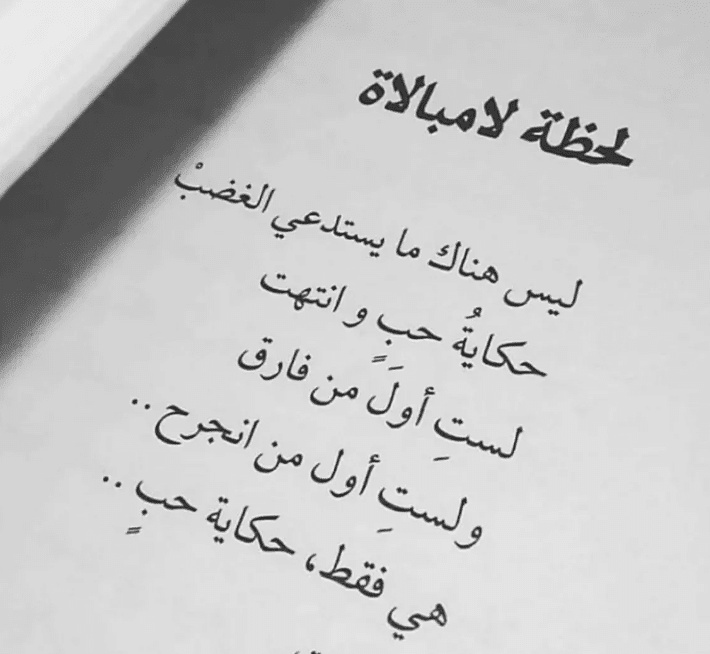 لحظة لامبالاة
ليس هناك ما يستدعي الغضبْ
حكايةُ حبٍ و انتهت
لستِ أولَ من فارق
ولستِ أول من انجرح ..
هي فقط، حكاية حبٍ ..